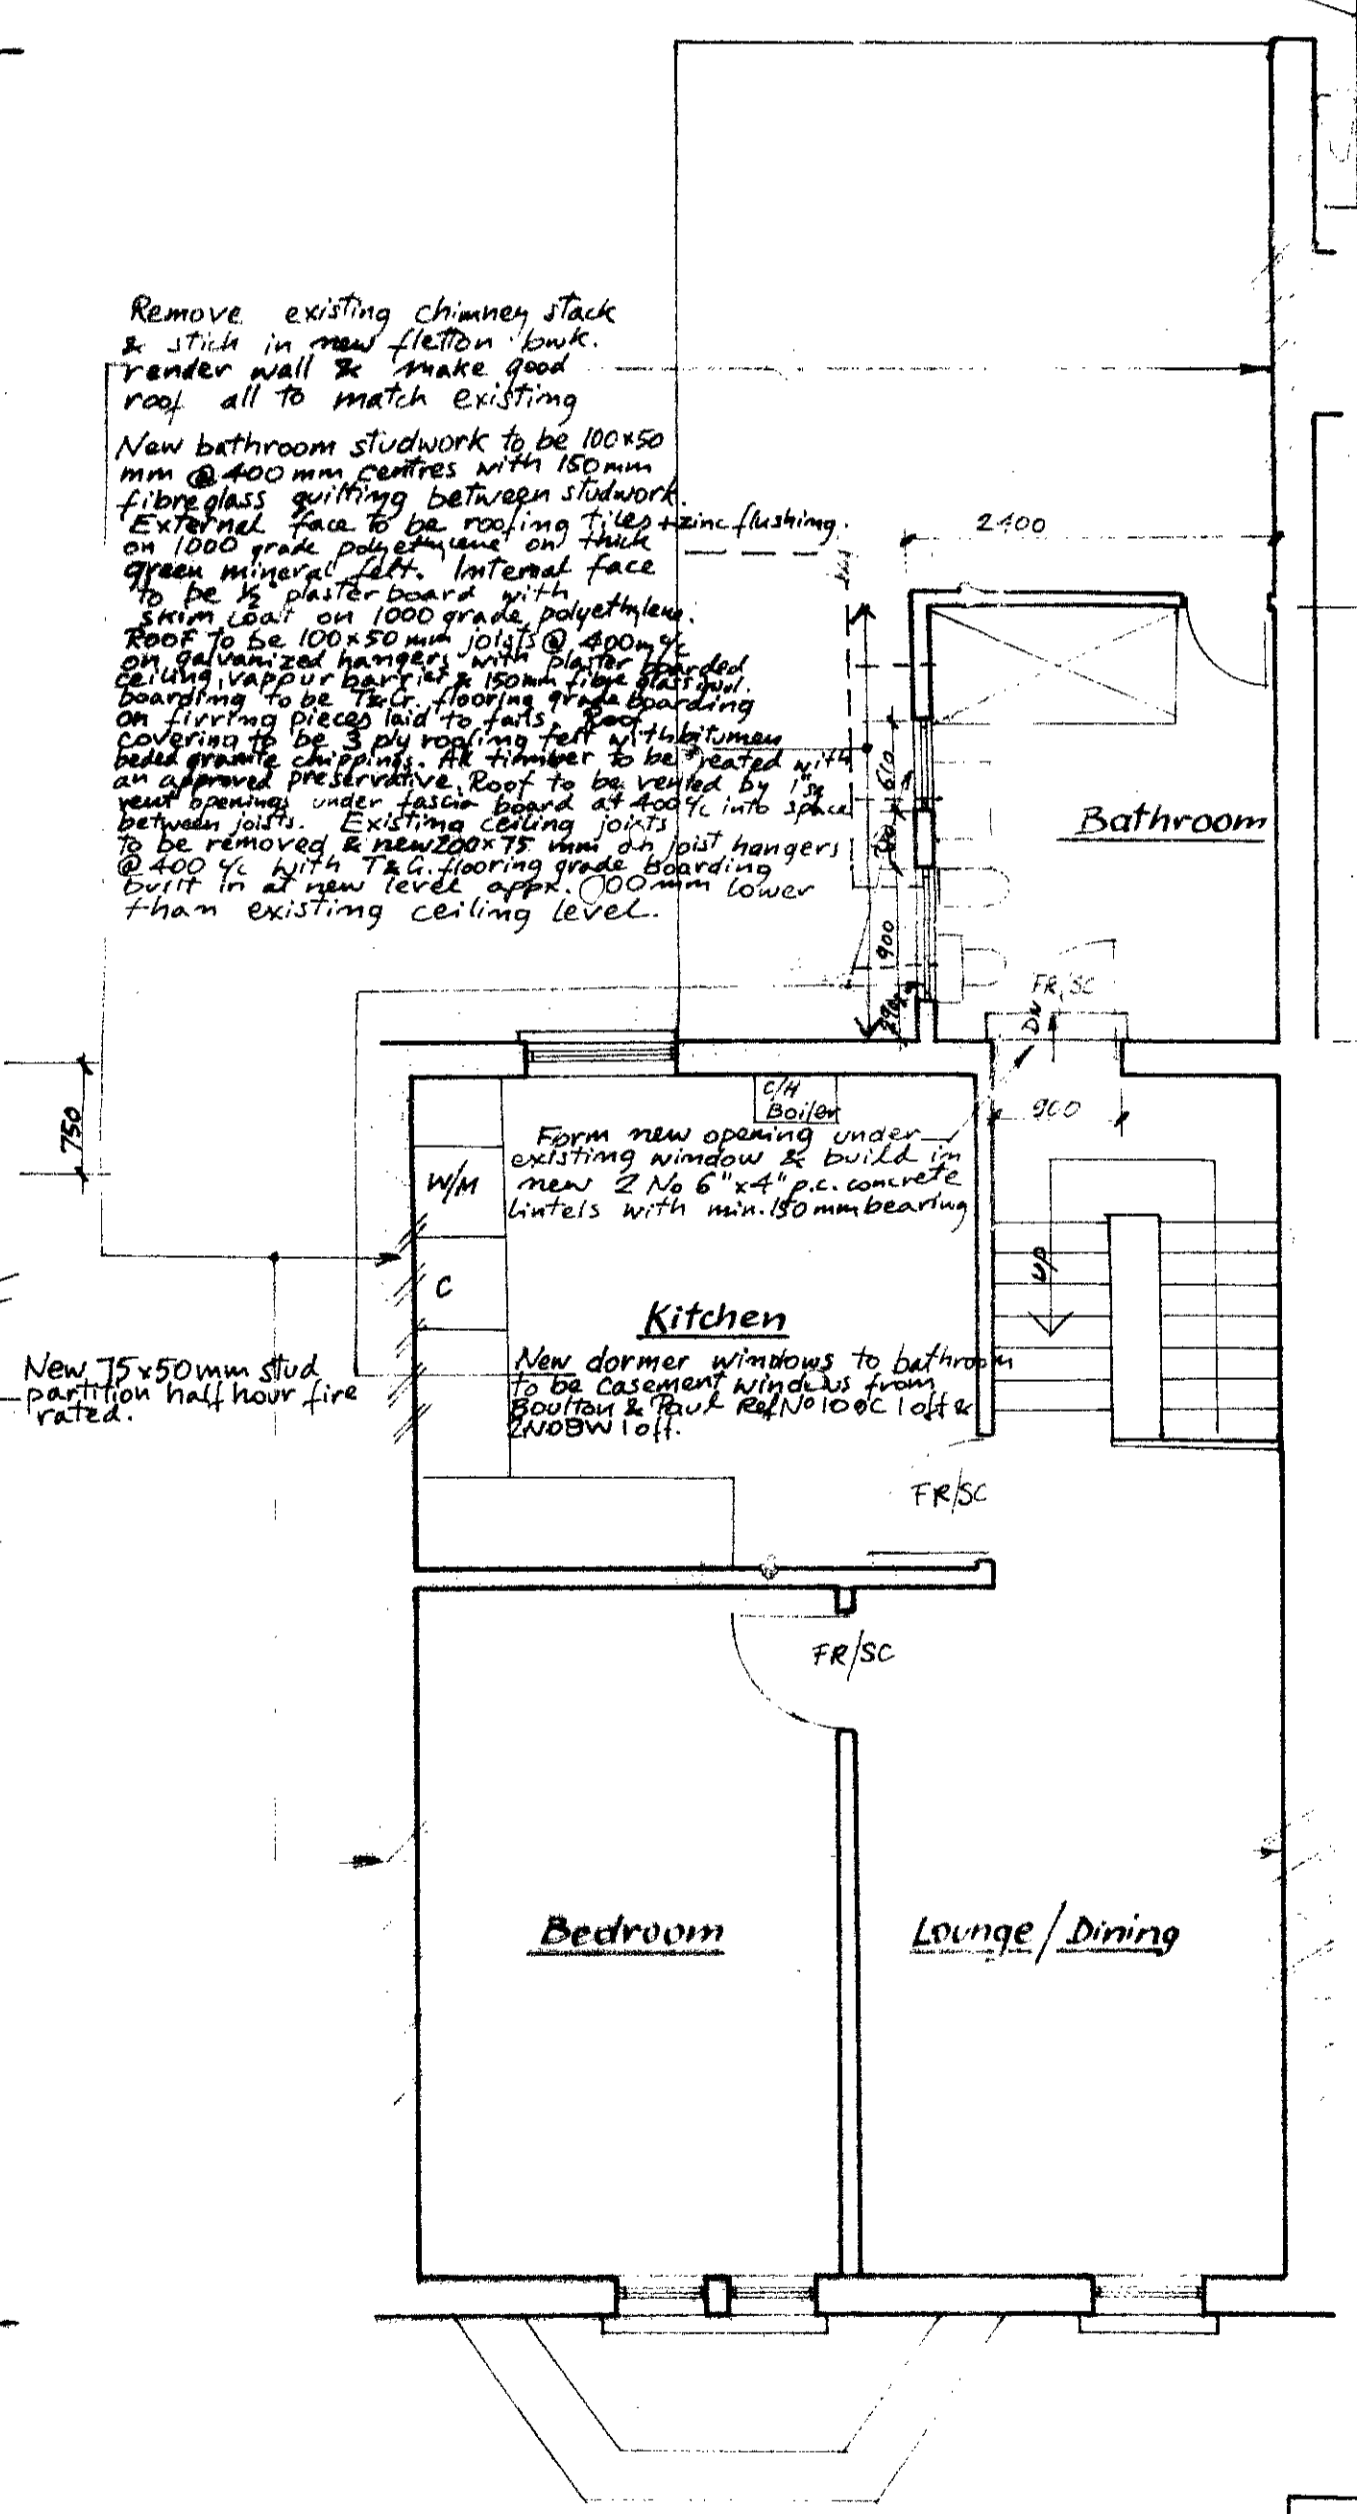 Remove existing chimney stack
& stich in new fletton bwk.
render wall & make good
roof all to match existing
New bathroom studwork to be 100x50
mm @ 400 mm centres with 150mm
fibreglass quilting between studwork.
External face to be roofing tiles + zinc flushing.
on 1000 grade polyethylene on thick
green mineral felt. Internal face
to be ½ plaster board with
skim coat on 1000 grade polyethylene.
Roof to be 100x50 mm joists @ 400m c/c
on galvanized hangers with plaster boarded
ceiling, vappur barrier & 150mm fibre glass
boarding to be T&G. flooring grade boarding
on firring pieces laid to falls. Roof
covering to be 3 ply roofing felt with bitumen
beded granite chippings. All timmber to be treated with
an approved preservative. Roof to be vented by 1" sq
vent openings under fascia board at 400 c/c into space
between joists. Existing ceiling joists
to be removed & new 200x75 mm on joist hangers
@ 400 c/c with T&G. flooring grade boarding
built in at new level appx. 00mm lower
than existing ceiling level.
2400
610
900
Bathroom
FR/SC
DN
900
750
C/H
Boiler
Form new opening under
existing window & build in
new 2 No 6"x4" p.c. concrete
lintels with min. 150mm bearing
W/M
C
UP
Kitchen
New dormer windows to bathroom
to be casement windows from
Boulton & Paul Ref No 1 oft &
2N08W 1 oft.
New 75x50mm stud
partition half hour fire
rated.
FR/SC
FR/SC
Bedroom
Lounge/Dining